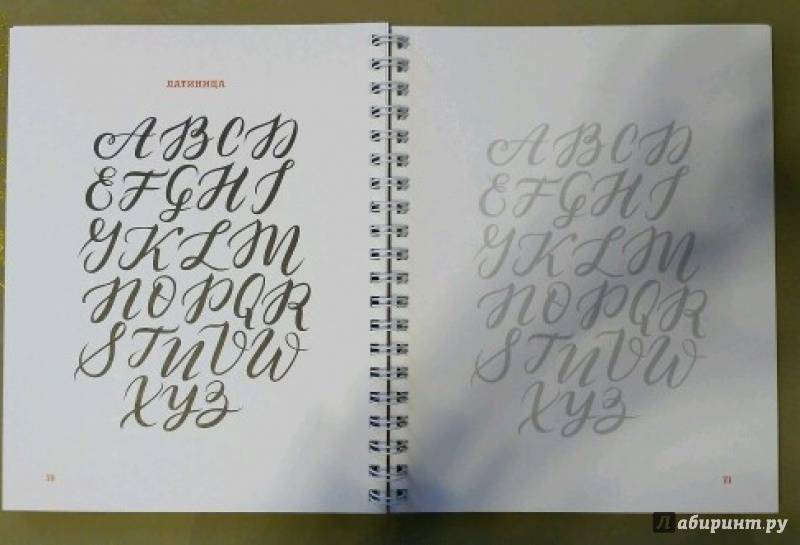 ЛАТИНИЦА
ABCD
EFGHI
JKLM
NOPQR
STUVW
XYZ
70
ABCD
EFGHI
JKLM
NOPQR
STUVW
XYZ
71
Лабиринт.ру